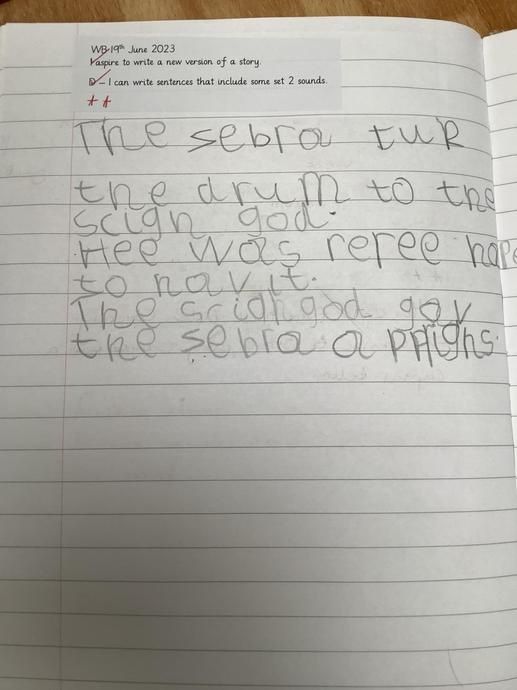 WB 19th June 2023
I aspire to write a new version of a story.
D – I can write sentences that include some set 2 sounds.
The sebra tuk
the drum to the
scign god.
Hee was reree hape
to hav it.
The scigh god gav
the sebra a prighs.